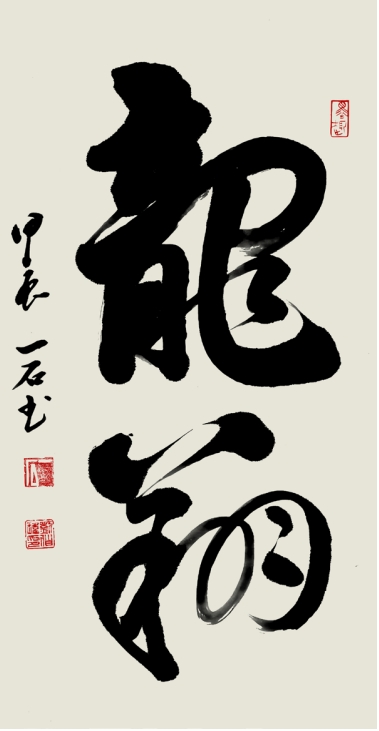 龍翔
甲辰 一石書